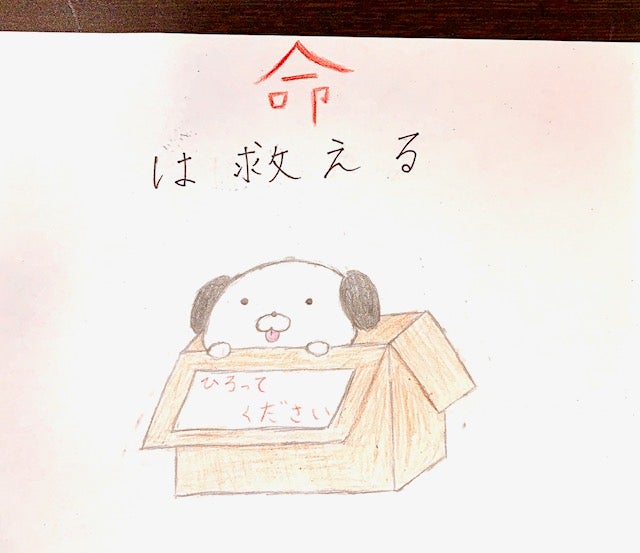 命
は救える
ひろって
ください